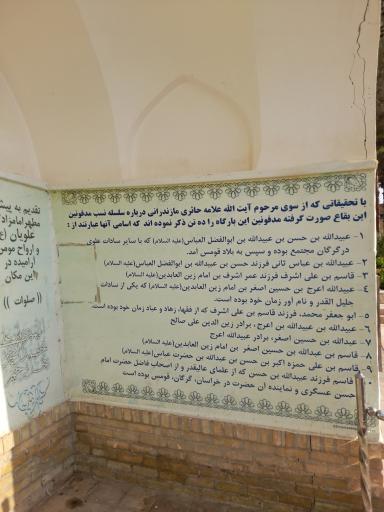 با تحقیقاتی که از سوی مرحوم آیت الله علامه حائری مازندرانی درباره سلسله نسب مدفونین
این بقاع صورت گرفته مدفونین این بارگاه را ده تن ذکر نموده اند که اسامی آنها عبارتند از :
۱- عبیدالله بن حسن بن عبیدالله بن ابوالفضل العباس(علیه السلام) که با سایر سادات علوی
درگرگان مجتمع بوده و سپس به بلاد قومس آمد.
۲- عبیدالله بن عباس ثانی فرزند حسن بن عبیدالله بن ابوالفضل العباس(علیه السلام)
۳- قاسم بن علی اشرف فرزند عمر اشرف بن امام زین العابدین(علیه السلام)
۴- عبیدالله اعرج بن حسین اصغر بن امام زین العابدین(علیه السلام) که یکی از سادات
جلیل القدر و نام اور زمان خود بوده است.
۵- ابو جعفر محمد، فرزند قاسم بن علی اشرف که از فقها، زهاد و عباد زمان خود بوده است.
۶- عبیدالله بن عبیدالله بن اعرج، برادر زین الدین علی صالح
۷- عبیدالله بن حسین اصغر، برادر عبیدالله اعرج
۸- قاسم بن عبیدالله بن حسین اصغر بن امام زین العابدین(علیه السلام)
۹- قاسم بن علی حمزه اکبر بن حسن بن عبیدالله بن حضرت عباس(علیه السلام)
۱۰- قاسم فرزند عبیدالله بن حسن که از علمای عالیقدر و از اصحاب فاضل حضرت امام
حسن عسکری و نماینده ان حضرت در خراسان، گرگان، قومس بوده است
تقدیم به پیش
مطهر امامزاد
علویان (ع
و ارواح مومن
آرمیده در
این مکان
(( صلوات ))